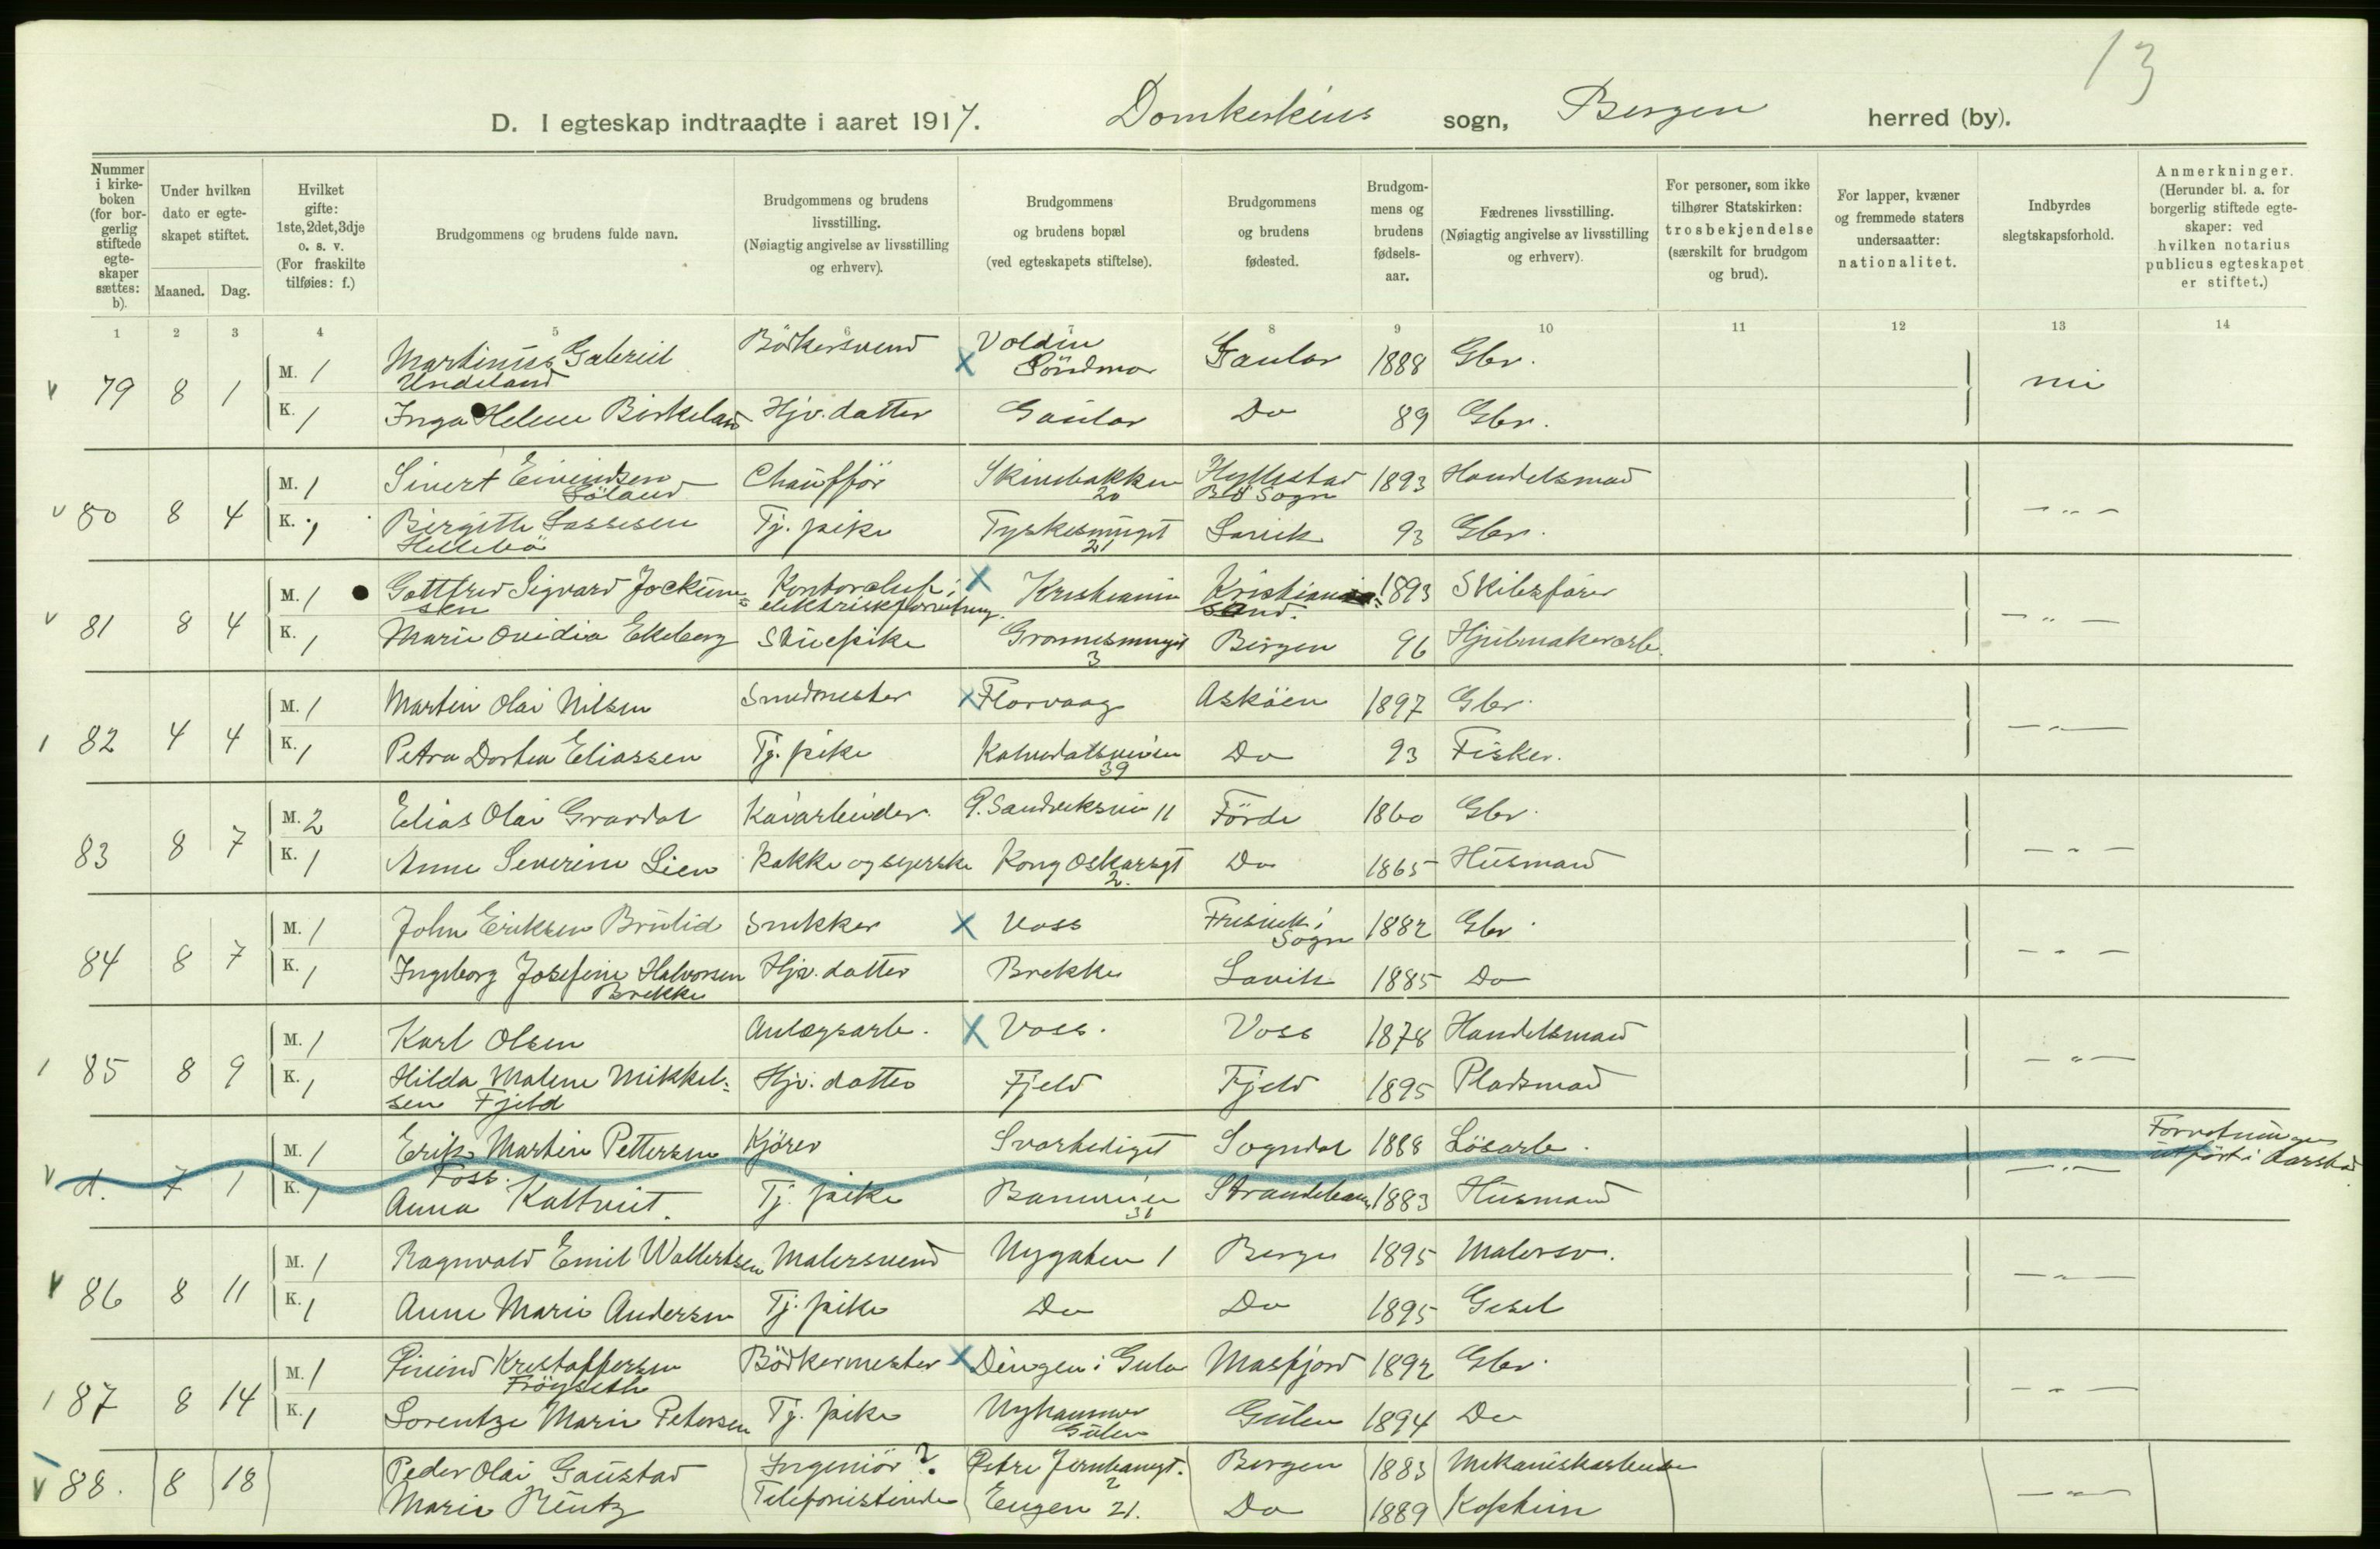 13
D. I egteskap indtraadte i aaret 1917. Domkirkens sogn, Bergen herred (by).
Nummer i kirke-boken (for bor-gerlig stiftede egte-skaper sættes: b).
Under hvilken dato er egte-skapet stiftet.
Maaned. Dag.
Hvilket gifte: 1ste, 2det, 3dje o. s. v. (For fraskilte tilføies: f.)
Brudgommens og brudens fulde navn.
Brudgommens og brudens livsstilling. (Nøiagtig angivelse av livsstilling og erhverv).
Brudgommens og brudens bopæl (ved egteskapets stiftelse).
Brudgommens og brudens fødested.
Brudgom-mens og brudens fødsels-aar.
Fædrenes livsstilling. (Nøiagtig angivelse av livsstilling og erhverv).
For personer, som ikke tilhører Statskirken: trosbekjendelse (særskilt for brudgom og brud).
For lapper, kvæner og fremmede staters undersaatter: nationalitet.
Indbyrdes slegtskapsforhold.
Anmerkninger. (Herunder bl. a. for borgerlig stiftede egte-skaper: ved hvilken notarius publicus egteskapet er stiftet.)
1 2 3 4 5 6 7 8 9 10 11 12 13 14
v 79 8 1 M. 1 Martinus Gabriel Undeland Bödkersvend Volden x Söndmør Gaular 1888 Gbr. nei
K. 1 Inga Helene Birkeland Hjv. datter Gaular Do 89 Gbr.
v 80 8 4 M. 1 Sivert Eivindsen Söland Chaufför Skivebakken 20 Hyllestad Bö Sogn 1893 Handelsmand - " -
K. 1 Birgitte Lassesen Hellebö Tj. pike Tyskesmuget 21 Lavik 93 Gbr.
v 81 8 4 M. 1 Gottfred Sigvard Jockum=sen Kontorchef i elektriskforretning. x Kristiania Kristiansand. 1893 Skibsförer - " -
K. 1 Marie Ovidia Ekeberg Stuepike Grønnesmuget 3 Bergen 96 Hjulmakerarb.
1 82 4 4 M. 1 Martin Olai Nilsen Smedmester x Florvaag Asköen 1897 Gbr. - " -
K. 1 Petra Dortea Eliassen Tj. pike Kalvedalsveien 39 Do 93 Fisker.
83 8 7 M. 2 Elias Olai Grovdal Kaiarbeider. P. Sandviksvei 11 Förde 1860 Gbr. - " -
K. 1 Anne Severine Lien Kokke og syerske Kong Oskarsgt 2. Do 1865 Husmand
84 8 7 M. 1 John Eriksen Brulid Snekker x Voss Fresvik i Sogn 1882 Gbr. - " -
K. 1 Ingeborg Josefine Halvorsen Brekke Hjv. datter Brekke Lavik 1885 Do
1 85 8 9 M. 1 Karl Olsen Anlægsarb. x Voss. Voss 1878 Handelsmand - " -
K. 1 Hilda Malene Mikkel=sen Fjeld Hjv. datter Fjeld Fjeld 1895 Pladsmand
v 7 1 M. 1 Erik Martin Pettersen Foss. Kjörer Svartediget Sogndal 1888 Lösarb. - " - Forretningen utfört i Aarstad
K. 1 Anna Kaltveit. Tj. pike 31 Strandebarm 1883 Husmand
v 86 8 11 M. 1 Ragnvald Emil Wallertsen Malersvend Nygaten 1 Bergen 1895 Malersv. - " -
K. 1 Anne Marie Andersen Tj. pike Do Do 1895 Gesel
1 87 8 14 M. 1 Eivind Kristoffersen Fröyseth Bödkermester x Dingen i Gulen Masfjord 1892 Gbr. - " -
K. 1 Lorentze Marie Petersen Tj. pike Nyhammer Gulen Gulen 1894 Do
v 88. 8 18 Peder Olai Gaustad Ingeniör ? Östre Jernbanegt. 2 Bergen 1883 Mekaniskarbeider - " -
Marie Rentz Telefonistinde Engen 21. Do 1889 Kaptein